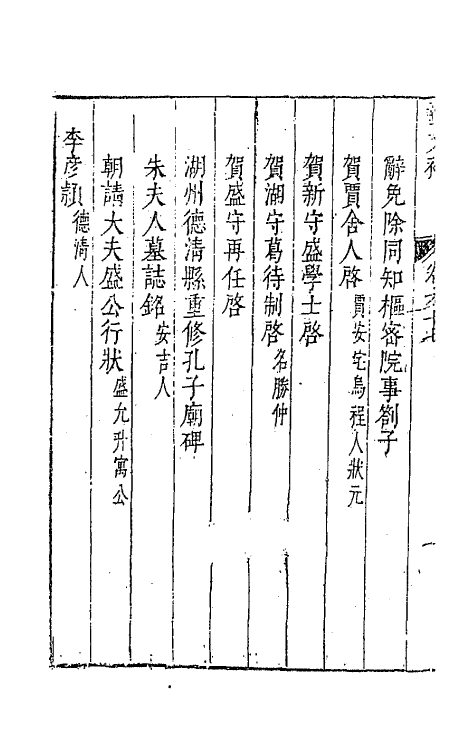 辭免除同知樞密院事劄子
賀賈舍人啓 賈安宅烏程人狀元
賀新守盛學士啓
賀湖守葛待制啓 名勝仲
賀盛守再任啓
湖州德清縣重修孔子廟碑
朱夫人墓誌銘 安吉人
朝請大夫盛公行狀 盛允升寓公
李彦頴 德清人